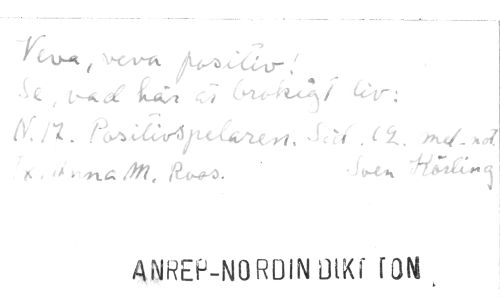 Veva, veva positiv!
Se, vad här är brokigt liv:
N. 12. Positivspelaren. 12. med not.
Anna M. Roos. Sven Körling
ANREP-NORDIN DIKT TON